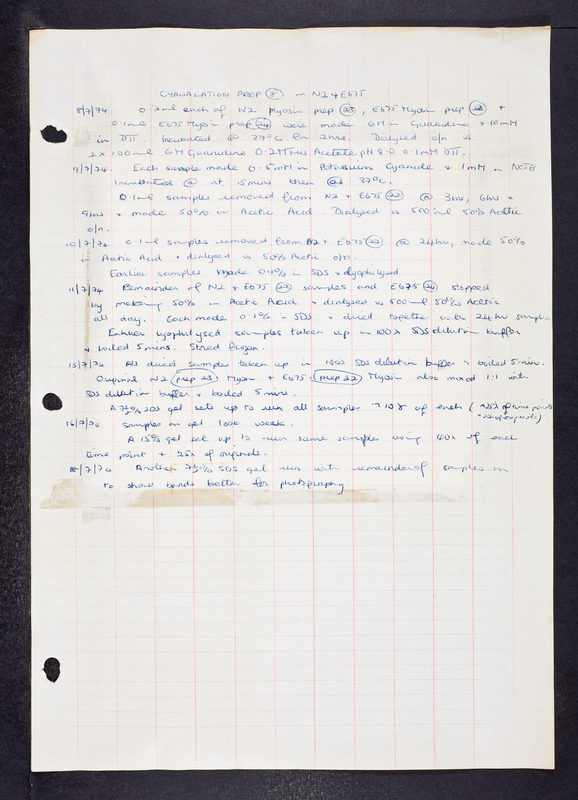 CYANALATION PREP (8) on N2 + E675
8/7/74 0.2ml each of N2 Myosin prep (23), E675 Myosin prep (22) +
0.1ml E675 Myosin prep (24) were made 6M in Guanidine + 10mM
in DTT Incubated @ 37°C for 2hrs. Dialysed o/n vs
2 x 100ml 6M Guanidine 0.2M Tris Acetate pH 8.0 0.1mM DTT.
9/7/74. Each sample made 0.5mM in Potassium Cyanide + 1mM in NCTB
Incubated @ rt 15mins then @ 37°C.
0.1ml samples removed from N2 + E675 (22) @ 3hrs, 6hrs +
9hrs + made 50% in Acetic Acid. Dialysed vs 500ml 50% Acetic
o/n.
10/7/74 0.1ml samples removed from N2 + E675 (22) @ 24hr, made 50%
in Acetic Acid + dialysed vs 50% Acetic o/n.
Earlier samples made 0.1% in SDS + lyophilysed
11/7/74 Remainder of N2 + E675 (22) samples and E675 (24) stopped
by making 50% in Acetic Acid + dialysed vs 500ml 50% Acetic
all day. Each made 0.1% in SDS + dried together with 24hr sample
Earlier lyophilysed samples taken up in 100λ SDS dilution buffer
+ boiled 5 mins. Stored frozen.
15/7/74 All dried samples taken up in 100λ SDS dilution buffer + boiled 5 min.
Original N2 (prep 23) Myosin + E675 (prep 22) Myosin also mixed 1:1 with
SDS dilution buffer + boiled 5 mins.
A 7½% SDS gel sets up to run all samples of each ( of time points
+ of originals)
16/7/74 samples on gel look weak.
A 15% gel set up to run same samples using 40λ of each
time point + 25λ of originals.
/7/74 Another 7½% SDS gel run with remainder of samples on
to show bands better for photography